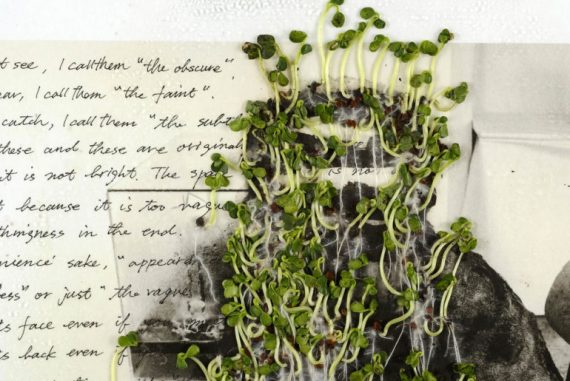 t see, I call them "the obscure",
ear, I call them "the faint".
catch, I call them "the
these and these are
it is not bright. The
is no
t because it is too
thingness in the end.
nience' sake, "appeara
ess" or just "the vague
's face even if
's back even if